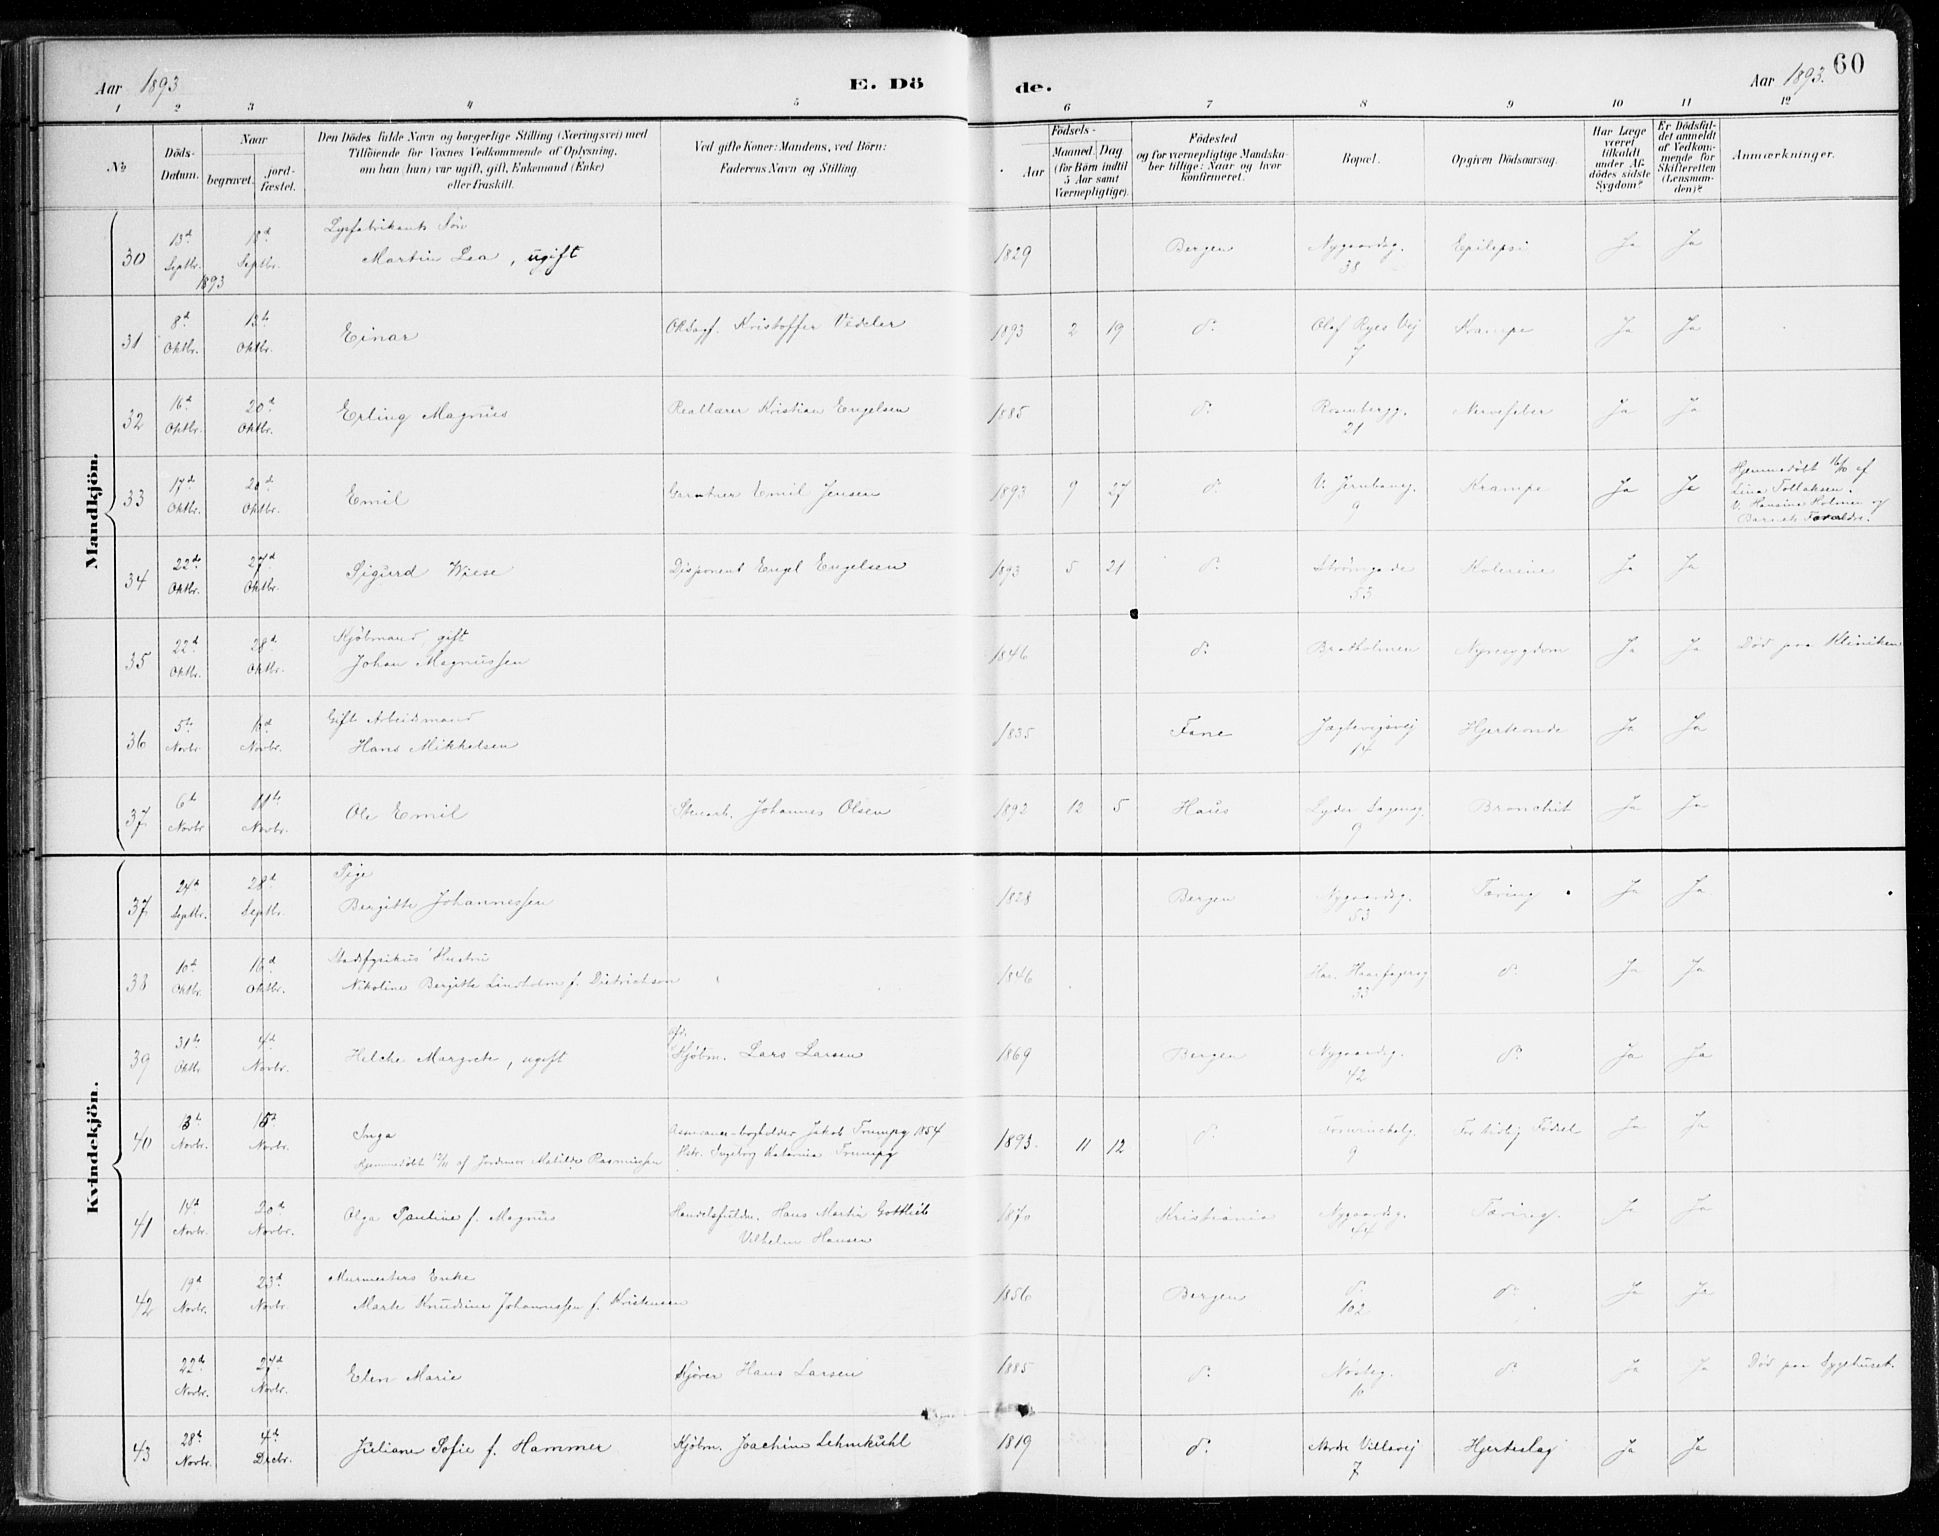 Aar 1893
E. Dö
de.
Aar 1893.
60
1 2 3 4 5 6 7 8 9 10 11 12
No
Döds-Datum.
Naar
begravet.
jord-fæstet.
Den Dödes fulde Navn og borgerlige Stilling (Næringsvei) med
Tilföiende for Voxnes Vedkommende af Oplysning,
om han (hun) var ugift, gift, Enkemand (Enke)
eller fraskilt.
Ved gifte Koner: Mandens, ved Börn:
Faderens Navn og Stilling.
Födsels-
Aar
Maaned. Dag
(for Börn indtil
5 Aar samt
Værnepligtige).
Födested
og for værnepligtige Mandska-
ber tillige: Naar og hvor
konfirmeret.
Bopæl.
Opgiven Dödsaarsag.
Har Læge
været
tilkaldt
under Af-
dödes sidste
Sygdom?
Er Dödsfal-
det anmeldt
af Vedkom-
mende for
Skifteretten
(Lensman-
den)?
Anmærkninger.
Mandkjön.
30 13d Septbr. 1893 18d Septbr. Lysfabrikants Søn
Martin Lea, ugift 1829 Bergen Nygaardsg. 38 Epilepsi Ja Ja
31 8d Oktbr. 13de Oktbr. Einar Kristoffer Vedeler 1893 2 19 do Olaf Ryes Vej 7 Krampe Ja Ja
32 16d Oktbr. 20d Oktbr. Erling Magnus Reallærer Kristian Engelsen 1885 do Rosenbergg. 21 Nervefeber Ja Ja
33 17d Oktbr. Oktbr. Emil Gartner Emil Jensen 1893 9 27 do V. Jernbaneg. 9 Krampe Ja Ja Hjemmedøbt 16/10 af
Lina Tollaksen.
V. Hansine Holmer og
Barnets Forældre.
34 22de Oktbr. 27d Oktbr. Sigurd Wiese Disponent Engel Engelsen 1893 5 21 do Strømgade 53 Kolerine Ja Ja
35 22d Oktbr. 28d Oktbr. Kjøbmand, gift
Johan Magnussen 1846 do Bratholmen Nyresygdom Ja Ja Død paa Kliniken
36 5te Novbr. Novbr. Gift Arbeidsmand
Hans Mikkelsen 1835 Fane 14 Hjerteonde Ja Ja
37 6te Novbr. 11te Novbr. Ole Emil Stenarb. Johannes Olsen 1892 12 5 Haus Lyder Sagensg. 9 Bronchit Ja Ja
Kvindekjön.
37 24d Septbr. 28d Septbr. Pige
Bergitte Johannessen 1828 Bergen Nygaardsg. 53 Tæring Ja Ja
38 10d Oktbr. 16d Oktbr. Stadsfysikus' Hustru
Nikoline Bergitte Lindholm f. Dietrichson 1846 Har. Haarfagresg. 33 do Ja Ja
39 31te Oktbr 4d Novbr. Helche Margrete, ugift afd. Kjøbm. Lars Larsen 1869 Bergen Nygaardsg. 42 do Ja Ja
40 Novbr. 15d Novbr. Inga
Hjemmedøbt af Jordemor Matilde Rasmussen
Jakob Trumpy 1854
Hstr. Ingeborg Katarina Trumpy 1893. 11 12 do 9 For tidlig Fødsel Ja Ja
41 14d Novbr. 20d Novbr. Olga Pauline f. Magnus Handelsfuldm. Hans Martin Gottlieb
Vilhelm Hansen 1870 Kristiania Nygaardsg. 44 Tæring. Ja Ja
42 19d Novbr. 23d Novbr. Murmesters Enke
Marte Knudine Johannessen f. Kristensen 1856 Bergen do 102 do Ja Ja
22de Novbr. 27d Novbr. Elen Marie Kjører Hans Larsen 1885 do Nøsteg. do Ja Ja Død paa Sygehuset.
43 28de Novbr. 4d Decbr. Juliane Sofie f. Hammer Kjøbm. Joachim Lehmkuhl 1819 do Nordre Villavej 7 Hjerteslag Ja Ja